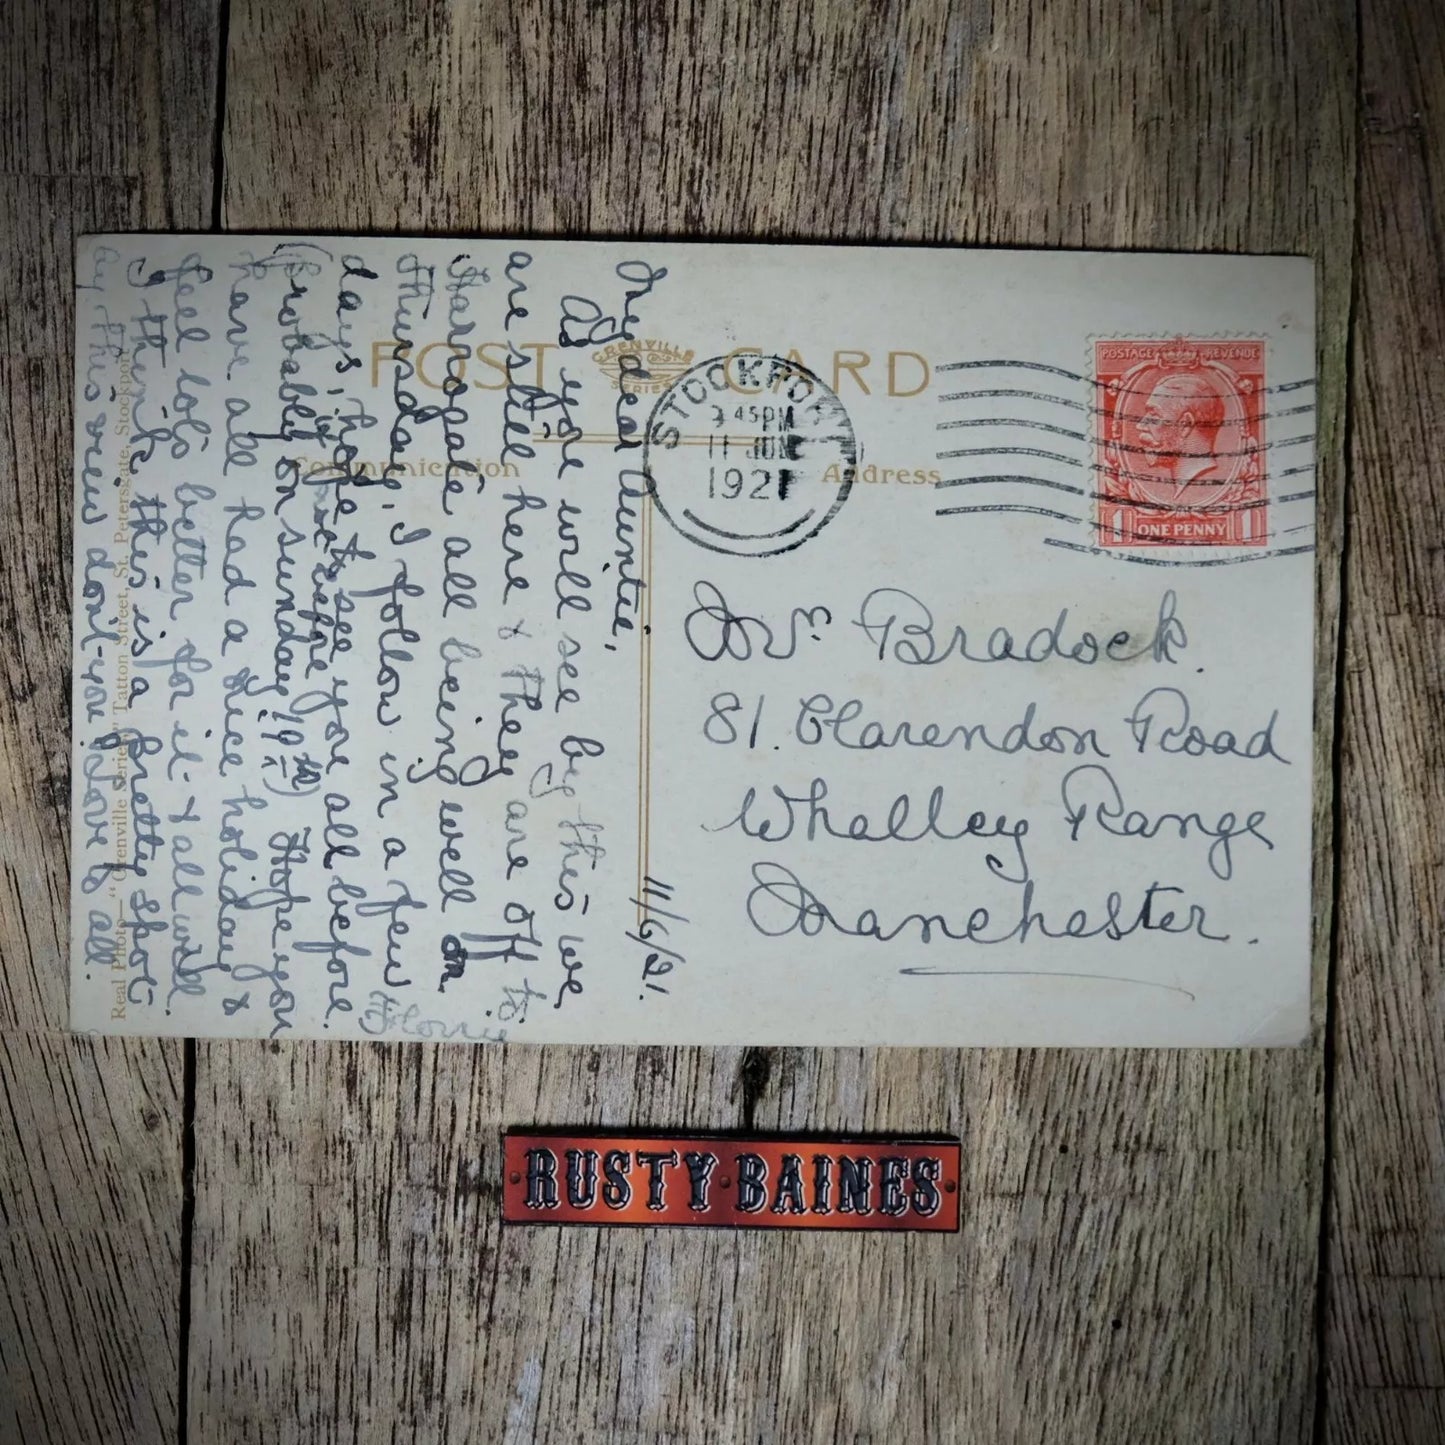 POST CARD
GRENVILLE
SERIES
Communication
Address
STOCKPORT
45PM
11 JUN
1921
POSTAGE REVENUE
1 ONE PENNY 1
Mrs Bradock.
81. Clarendon Road
Whalley Range
Manchester.
11/6/21.
My dear Auntie,
As you will see by this we
are still here & they are off to
Harrogate all being well on
Thursday, I follow in a few
days, hope to see you all before.
(Probably on Sunday 19th) Hope you
have all had a nice holiday &
feel lots better for it & all will
I think this is a pretty spot
this view don't you? Love to all.
Real Photo—"Grenville Series" Tatton Street, St. Petersgate, Stockport
RUSTY BAINES